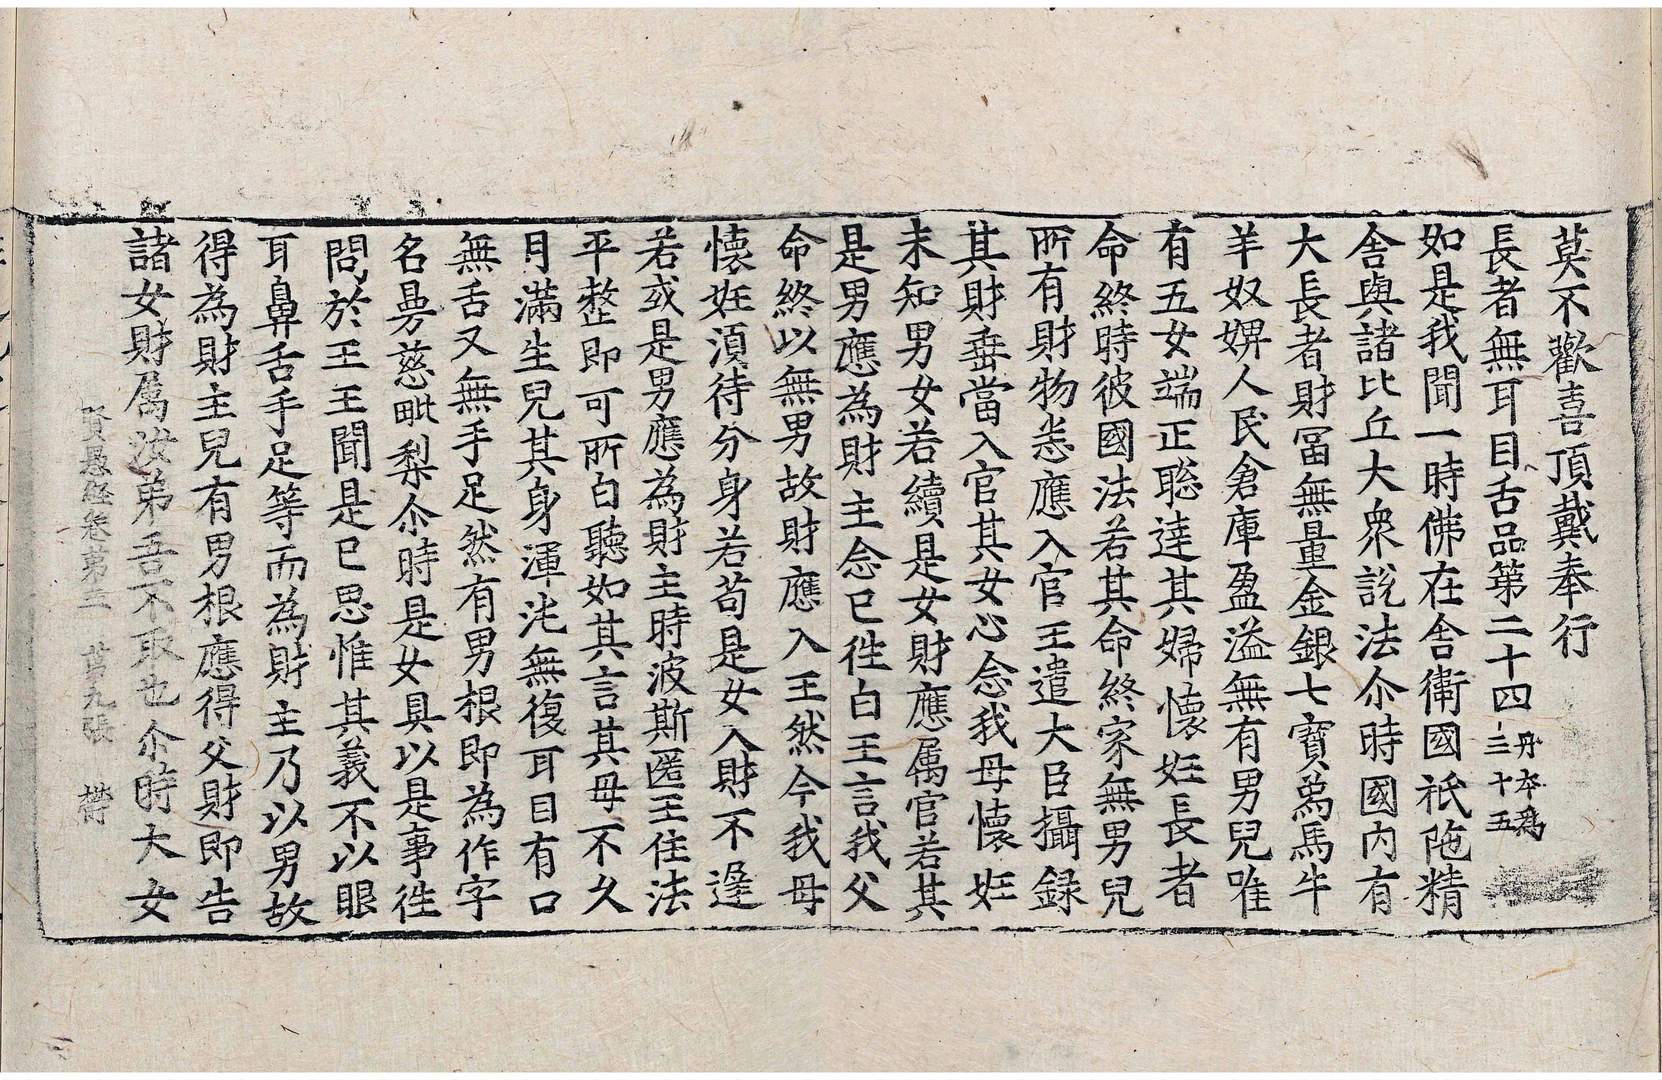 莫不歡喜頂戴奉行
長者無耳目舌品第二十四丹本為三十五
如是我聞一時佛在舍衛國祇陁精
舍與諸比丘大衆說法尒時國內有
大長者財冨無量金銀七寶爲馬牛
羊奴婢人民倉庫盈溢無有男兒唯
有五女端正聡達其婦懷妊長者
命終時彼國法若其命終家無男兒
所有財物悉應入官王遣大臣攝録
其財垂當入官其女心念我母懷妊
未知男女若續是女財應属官若其
是男應為財主念已徃白王言我父
命終以無男故財應入王然今我母
懷妊湏待分身若苟是女入財不遟
若或是男應為財主時波斯匿王住法
平整即可所白聽如其言其母不久
月滿生兒其身渾沌無復耳目有口
無舌又無手足然有男根即為作字
名曼慈毗梨尒時是女具以是事徃
問於王王聞是已思惟其義不以眼
耳鼻舌手足等而為財主乃以男故
得為財主兒有男根應得父財即告
諸女財属汝弟吾不取也尒時大女
賢愚経卷苐五 苐九張